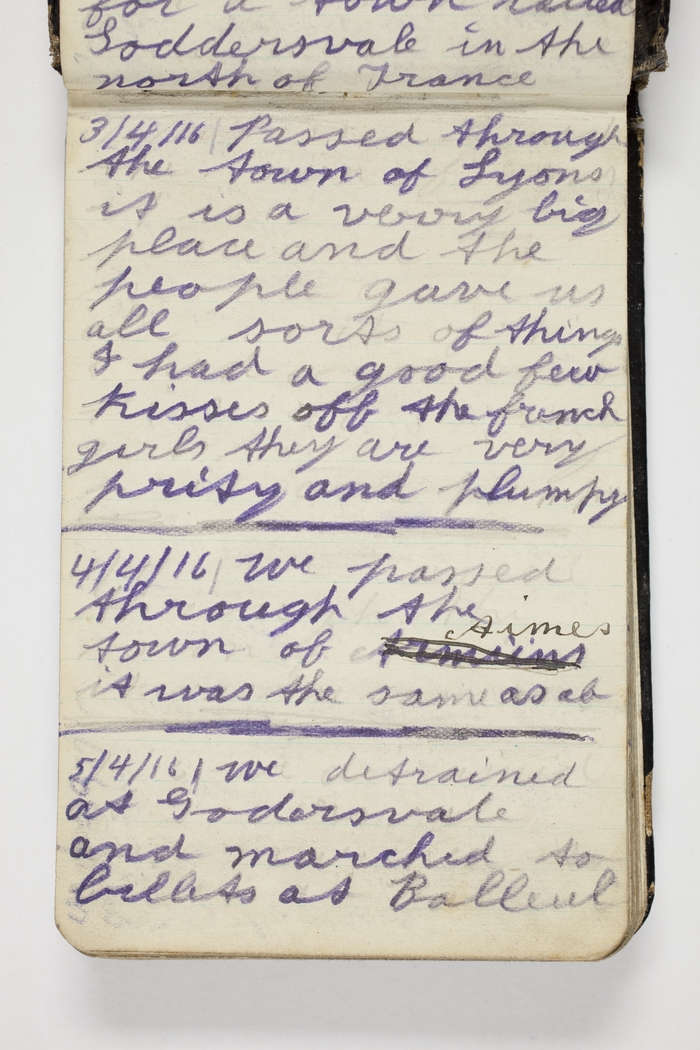 for a town called
Goddersvale in the
north of France
3/4/16 | Passed through
the town of Lyons
it is a verry big
place and the
people gave us
all sorts of things
I had a good few
kisses off the french
girls they are very
prity and plumpy
4/4/16 | We passed
through the
Aimes
town of
it was the same as ab
5/4/16 | We detrained
at Godersvale
and marched to
billets at Balleul